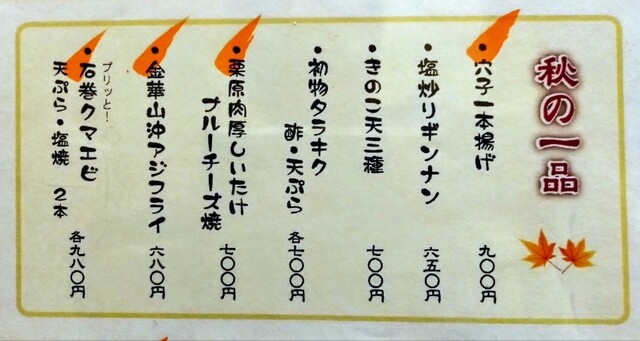 秋の一品
・穴子一本揚げ 九〇〇円
・塩炒りギンナン 六五〇円
・きのこ天三種 七〇〇円
・初物タラキク
酢・天ぷら 各七〇〇円
・栗原肉厚しいたけ
ブルーチーズ焼 七〇〇円
・金華山沖アジフライ 六八〇円
プリッと!
・石巻クマエビ
天ぷら・塩焼 2本 各九八〇円